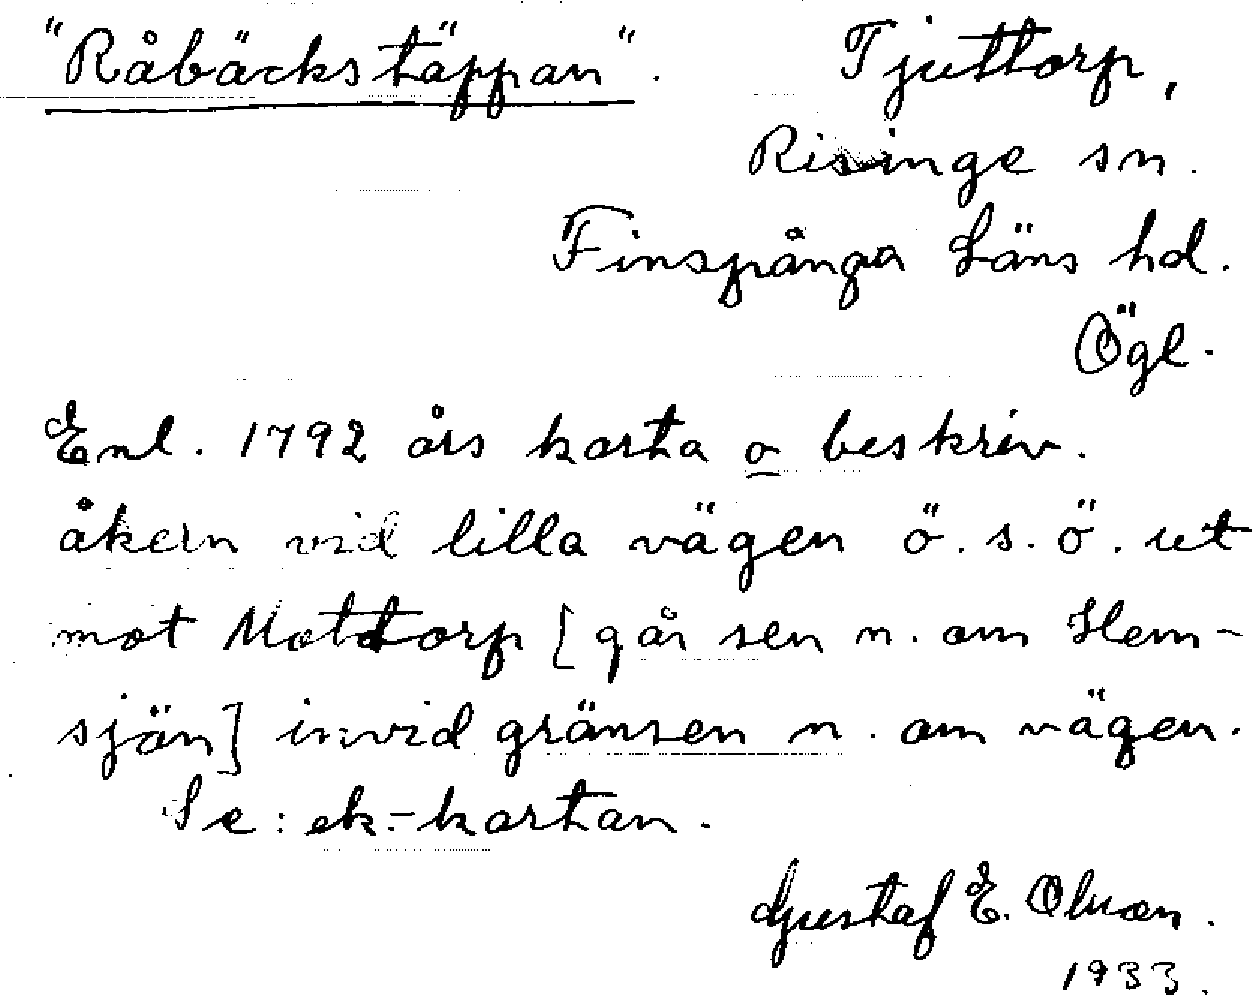 "Råbäckstäppan". Tjuttorp,
Risinge sn.
Finspånga Läns hd.
Ögl.
Enl. 1792 års karta o beskriv.
åkern vid lilla vägen ö.s.ö. ut
mot Mottorp [går sen n. om Hem-
sjön] invid gränsen n. om vägen.
Se: ek.-kartan.
Gustaf E. Olsson.
1933.